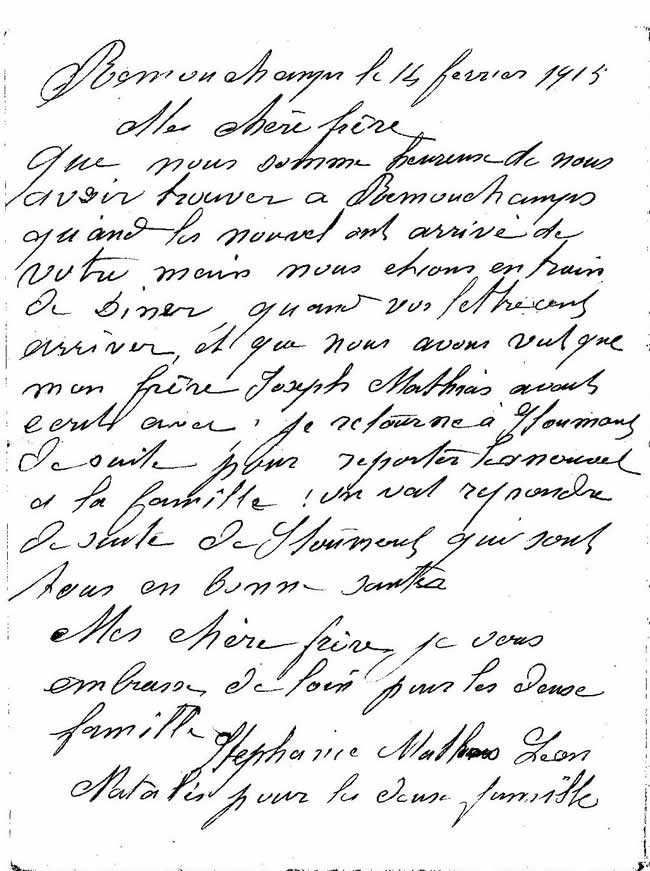 Remouchamps le 14 fevrier 1915
Mes chère frère
que nous somme heureuse de nous
avoir trouver a Remouchamps
quand les nouvel ont arrivé de
votre main nous etions en train
de diner quand vos lettre ont
arriver, et que nous avons vut que
mon frère Joseph Mathias avait
ecrit avec. je retourne à Stoumont
de suite pour reporter les nouvel
a la famille ! on vat repondre
de suite de Stoumont qui sont
tous en bonne santée
Mes chère frère, je vous
embrasse de loin pour les deux
famille
Stephanie Mathias Leon
Natalis pour les deux famille